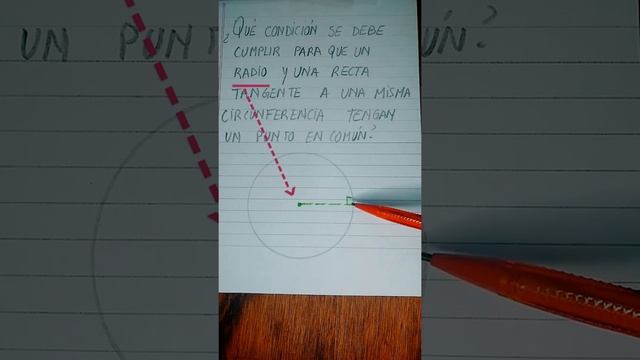 ¿QUÉ CONDICIÓN SE DEBE
CUMPLIR PARA QUE UN
RADIO Y UNA RECTA
TANGENTE A UNA MISMA
CIRCUNFERENCIA TENGAN
UN PUNTO EN COMÚN?